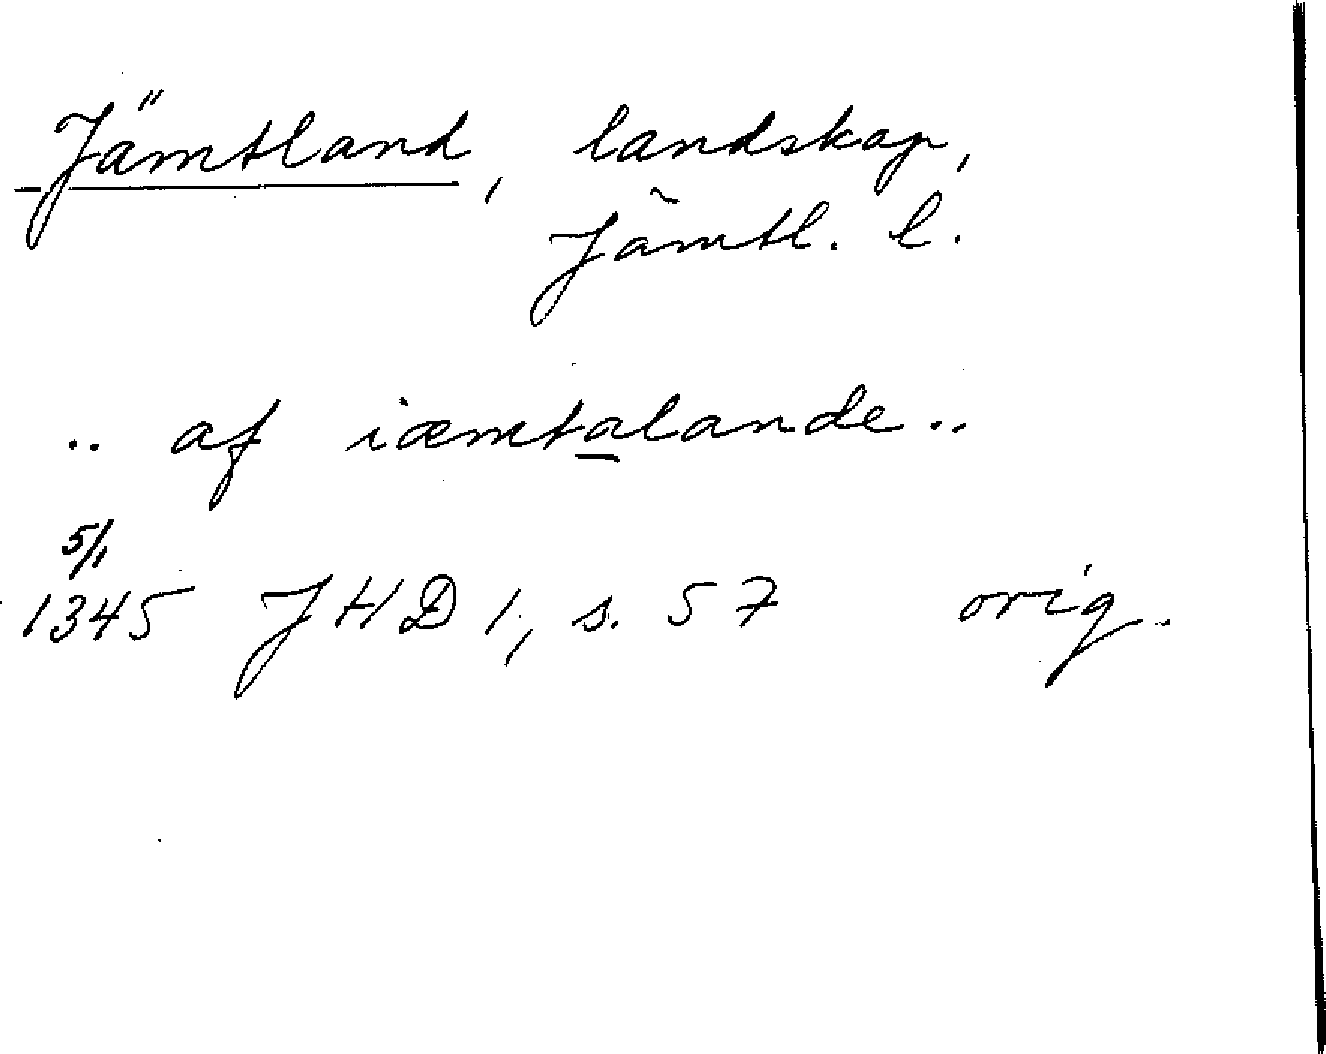 Jämtland, landskap,
Jämtl. l.
.. af iæmtalande ..
5/1
1345 JHD 1, s. 57 orig.